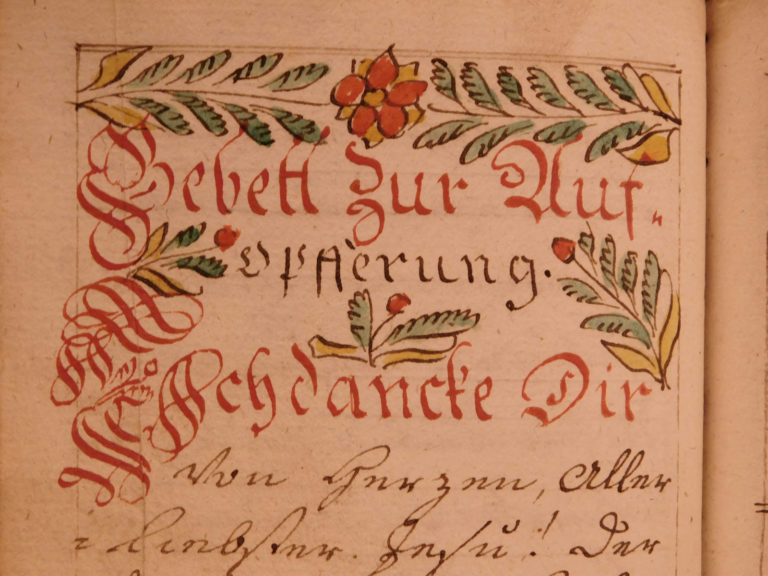 Gebett Zur Auf=
Opfferung.
Ich dancke Dir
Von Herzen, Aller
liebster Jesu! Der